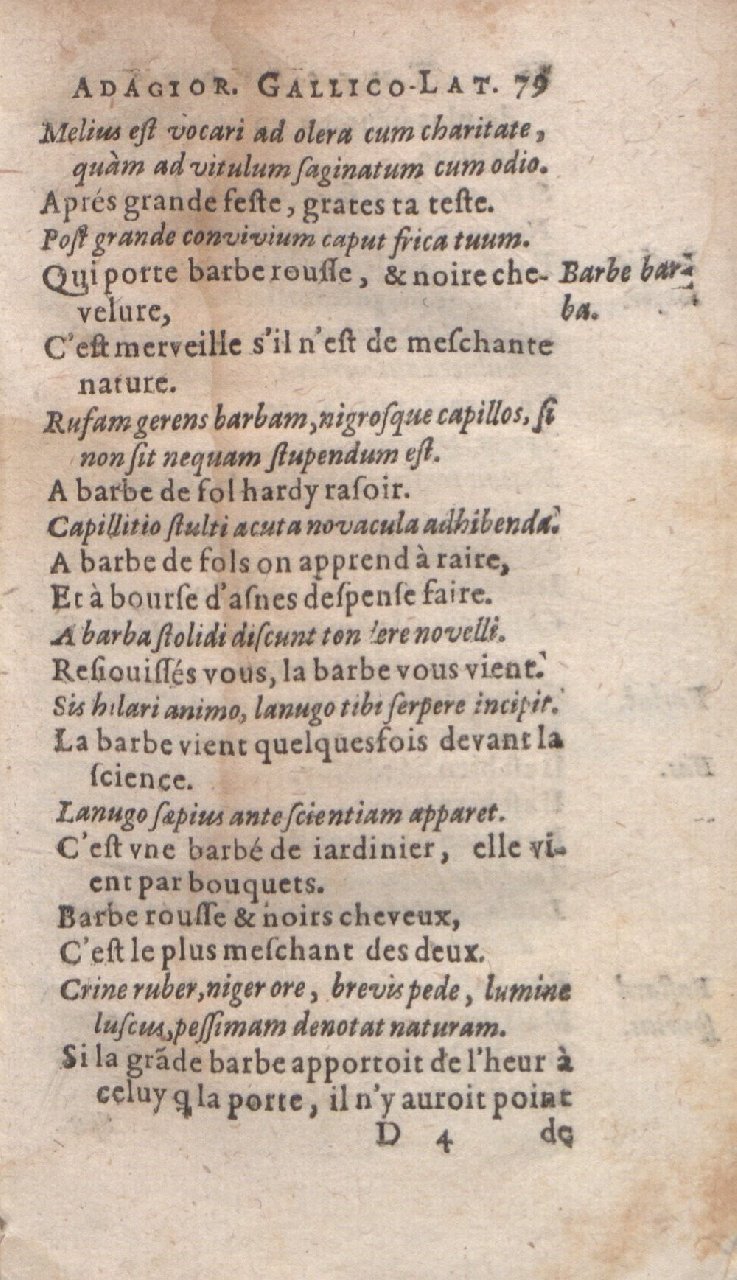 ADAGIOR. GALLICO-LAT. 79
Melius eſt vocari ad olera cum charitate,
quàm ad vitulum ſaginatum cum odio.
Aprés grande feſte, grates ta teſte.
Poſt grande convivium caput frica tuum.
Qui porte barbe rouſſe, & noire che-
velure,
Barbe bar-
ba.
C'eſt merveille s'il n'eſt de meſchante
nature.
Rufam gerens barbam, nigroſque capillos, ſi
non ſit nequam ſtupendum eſt.
A barbe de fol hardy raſoir.
Capillitio ſtulti acuta novacula adhibenda.
A barbe de fols on apprend à raire,
Et à bourſe d'aſnes deſpenſe faire.
A barba ſtolidi diſcunt ton ere novelli.
Reſiouiſſés vous, la barbe vous vient.
Sis hilari animo, lanugo tibi ſerpere incipit.
La barbe vient quelquesfois devant la
ſcience.
Lanugo ſæpius ante ſcientiam apparet.
C'eſt vne barbé de iardinier, elle vi-
ent par bouquets.
Barbe rouſſe & noirs cheveux,
C'eſt le plus meſchant des deux.
Crine ruber, niger ore, brevis pede, lumine
luſcus, peſſimam denotat naturam.
Si la grãde barbe apportoit de l'heur à
celuy q la porte, il n'y auroit point
D 4 de